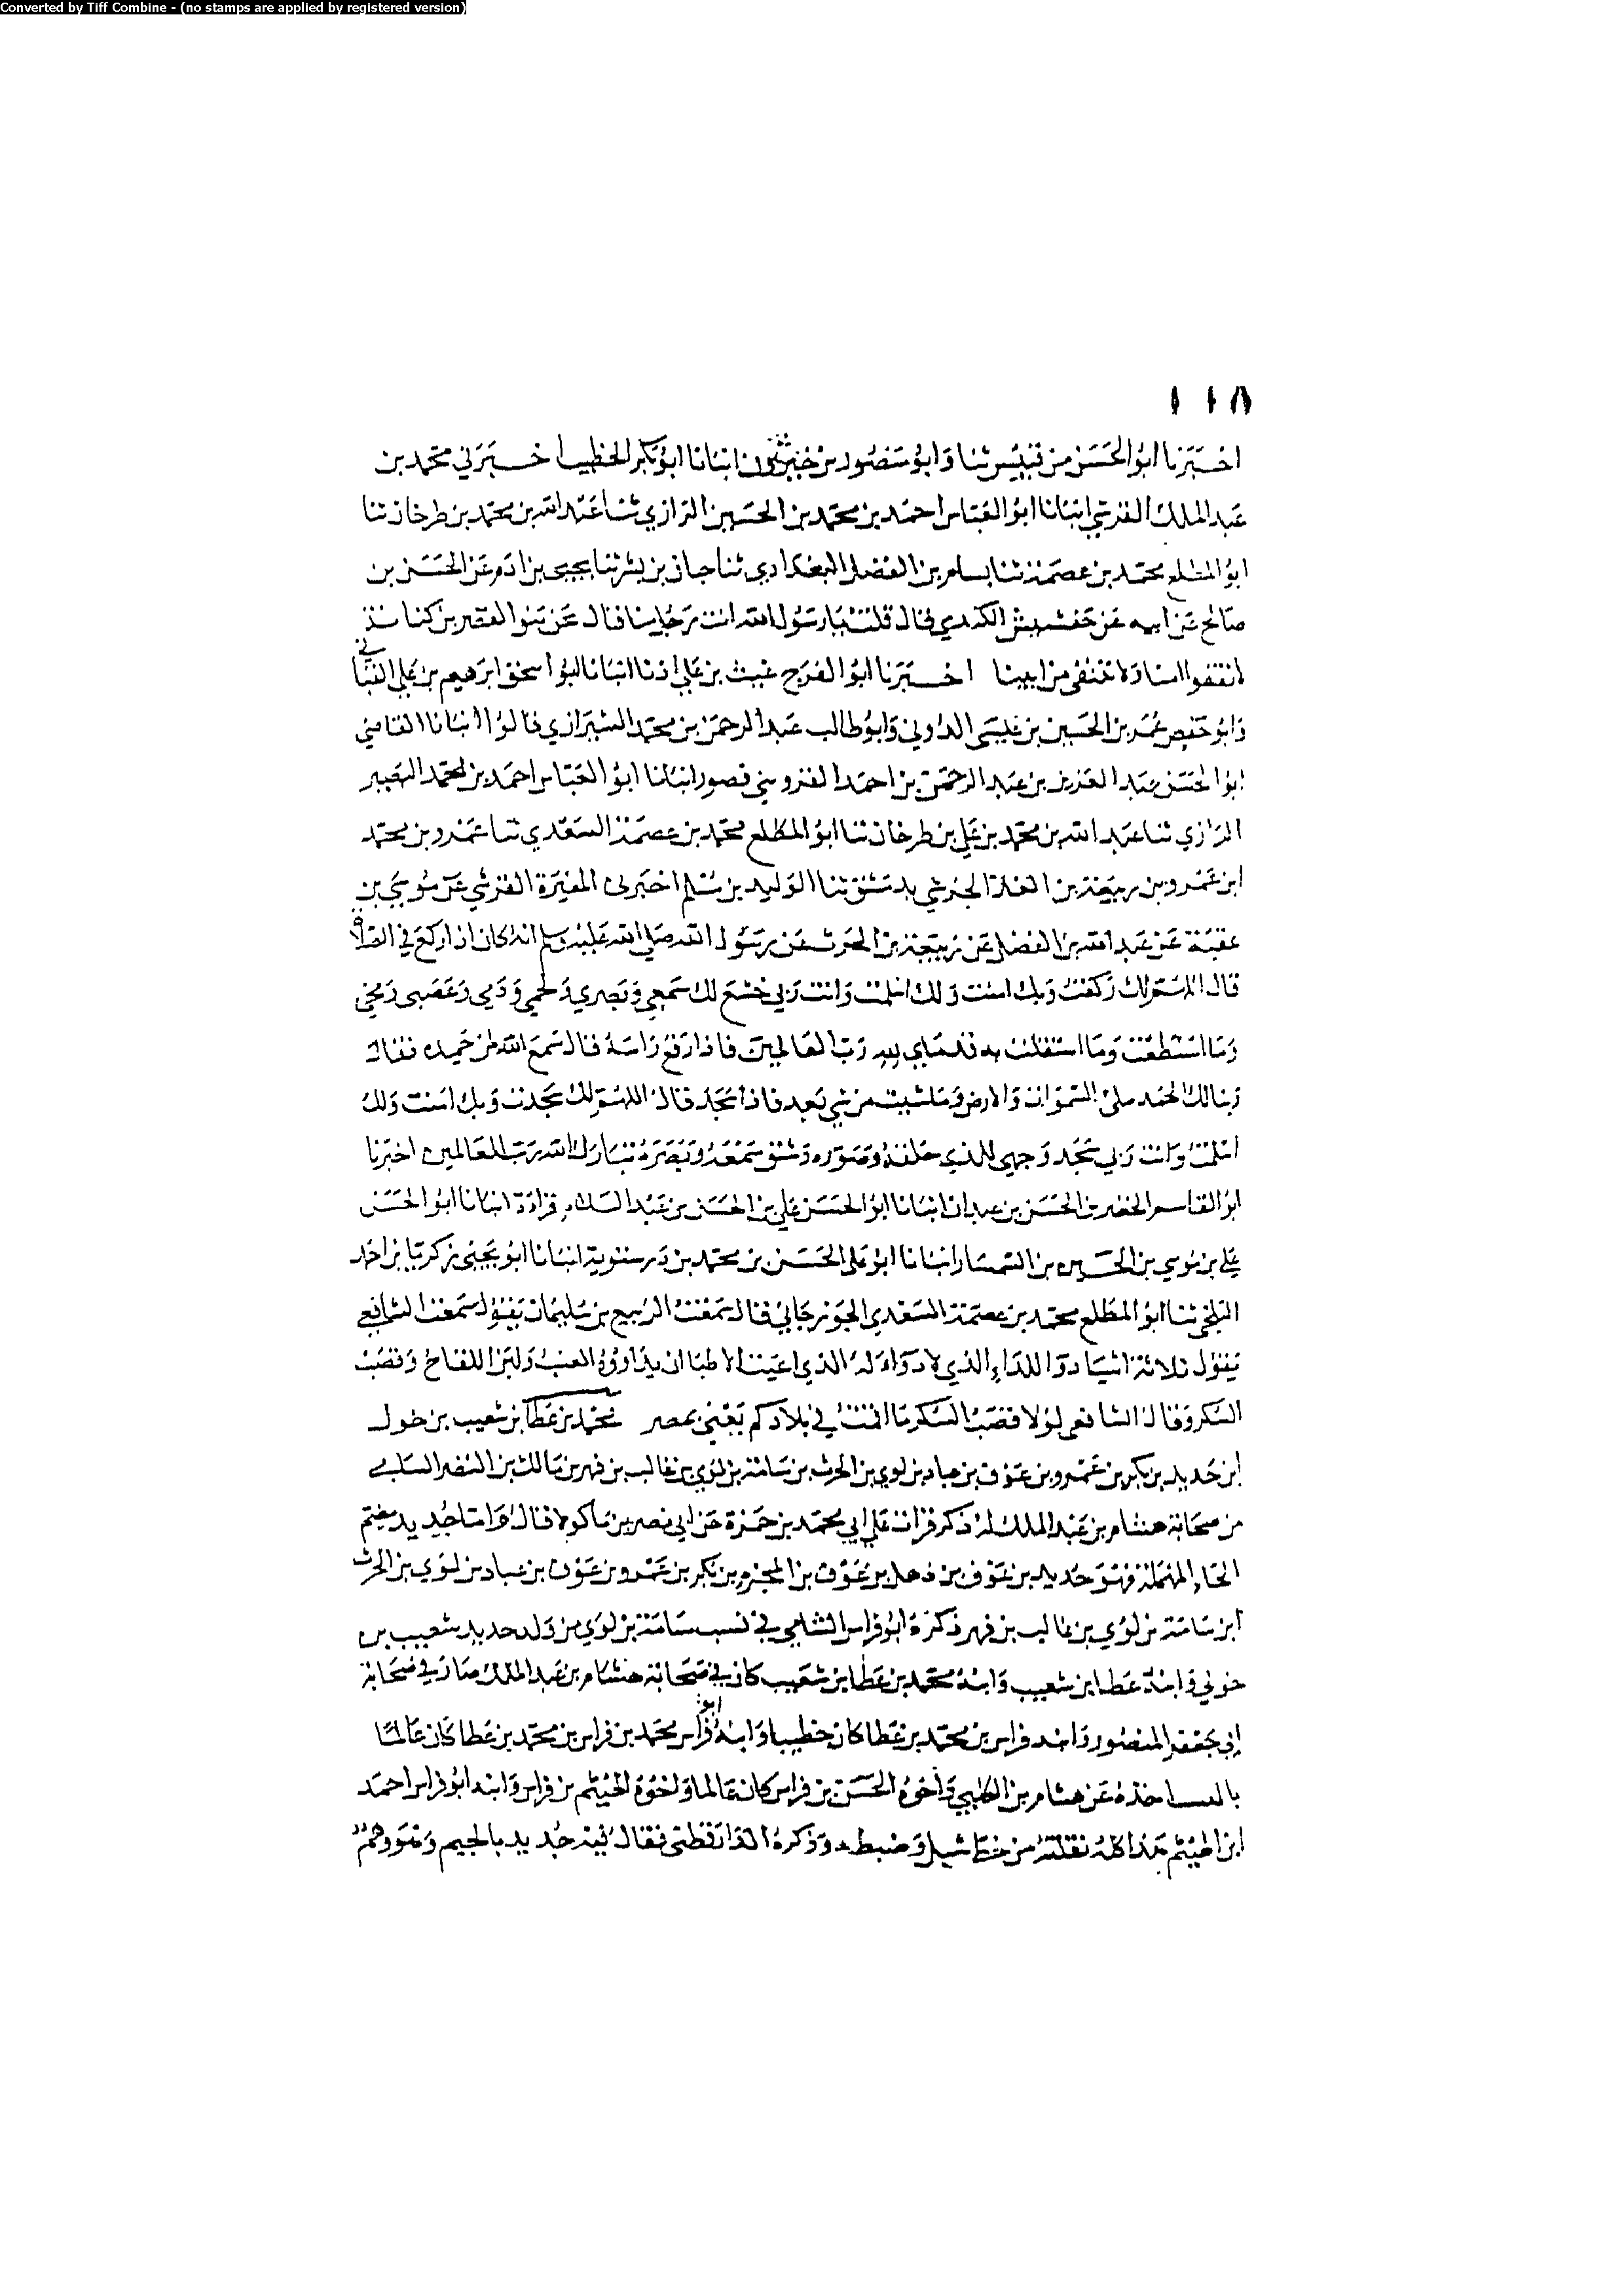 Converted by Tiff Combine - (no stamps are applied by registered version)
١١٨
اخبرنا ابو الحسن بن قبيس ثنا وابو منصور بن خيرون انبانا ابو بكر الخطيب اخبرني محمد بن
عبد الملك القرشي انبانا ابو العباس احمد بن محمد بن الحسين الرازي ثنا عبد الله بن محمد بن طرخان ثنا
ابو المطلع محمد بن عصمة ثنا بسام بن الفضل البغدادي ثنا حبان بن بشر ثنا يحيى بن ادم عن الحسن بن
صالح عن ابيه عن جفشيش الكندي قال قلت يا رسول الله انت رجل منا فقال نحن بنو النضر بن كنانة
لا نقفوا امنا ولا ننتفي من ابينا اخبرنا ابو الفرج غيث بن علي اذنا انبانا ابو اسحق ابرهيم بن علي القباني
وابو حفص عمر بن الحسين بن عيسى الدوني وابو طالب عبد الرحمن بن محمد الشيرازي قالوا انبانا القاضي
ابو الحسن عبد العزيز بن عبد الرحمن بن احمد القزويني بصور انبانا ابو العباس احمد بن محمد البصير
الرازي ثنا عبد الله بن محمد بن علي بن طرخان ثنا ابو المطلع محمد بن عصمة السعدي ثنا عمرو بن محمد
ابن عمرو بن ربيعة بن الغاز الجرشي بدمشق ثنا الوليد بن مسلم اخبرني المغيرة القرشي عن موسى بن
عقبة عن عبد الله بن الفضل عن ربيعة بن الحرث عن رسول الله صلى الله عليه وسلم انه كان اذا ركع في الصلاة
قال اللهم لك ركعت وبك امنت ولك اسلمت وانت ربي خشع لك سمعي وبصري ولحمي ودمي وعصبي ومخي
وما استطعت وما استقلت به قدماي لله رب العالمين فاذا رفع راسه قال سمع الله لمن حمده فقال
ربنا لك الحمد ملئ السموات والارض وما شيت من شي بعد فاذا سجد قال اللهم لك سجدت وبك امنت ولك
اسلمت وانت ربي سجد وجهي للذي خلقه وصوره وشق سمعه وبصره تبارك الله رب العالمين اخبرنا
ابو القاسم الخضر بن الحسن بن عبدان انبانا ابو الحسن علي بن الحسن بن عبد السلام قراءة انبانا ابو الحسن
علي بن موسى بن الحسين بن السمسار انبانا ابو علي الحسن بن محمد بن درستويه انبانا ابو يحيى زكريا بن احمد
البلخي ثنا ابو المطلع محمد بن عصمة السعدي الجوزجاني قال سمعت الربيع بن سليمان يقول سمعت الشافعي
يقول ثلاثة اشيا دوا للداء الذي لا دواء له الذي اعيت الاطبا ان يداووه العنب ولبن اللقاح وقصب
السكر وقال الشافعي لولا قصب السكر ما اقمت في بلادكم يعني بمصر محمد بن عطا بن شعيب بن خولي
ابن حديد بن بكر بن عمرو بن عوف بن عباد بن لوي بن الحرث بن سامة بن لوي بن غالب بن فهر بن مالك بن النضر السامي
من صحابة هشام بن عبد الملك له ذكر قرات على ابي محمد بن حمزة عن ابي نصر بن ماكولا قال واما حديد بضم
الحاء المهملة فهو حديد بن عوف بن ذهل بن عوف بن المجزم بن بكر بن عمرو بن عوف بن عباد بن لوي بن الحرث
ابن سامة بن لوي بن غالب بن فهر ذكره ابو فراس الشامي في نسب سامة بن لوي من ولد حديد شعيب بن
خولي وابنه عطا بن شعيب وابنه محمد بن عطا بن شعيب كان في صحابة هشام بن عبد الملك صار في صحابة
ابي جعفر المنصور وابنه فراس بن محمد بن عطا كان خطيبا وابنه ابو فراس محمد بن فراس بن محمد بن عطا كان عالما
بالنسب اخذه عن هشام بن الكلبي واخوه الحسن بن فراس كان عالما واخوه الهيثم بن فراس وابنه ابو فراس احمد
ابن الهيثم هذا كله نقلته من خط شبل وضبطه وذكره الدارقطني فقال فيه جديد بالجيم وهو وهم